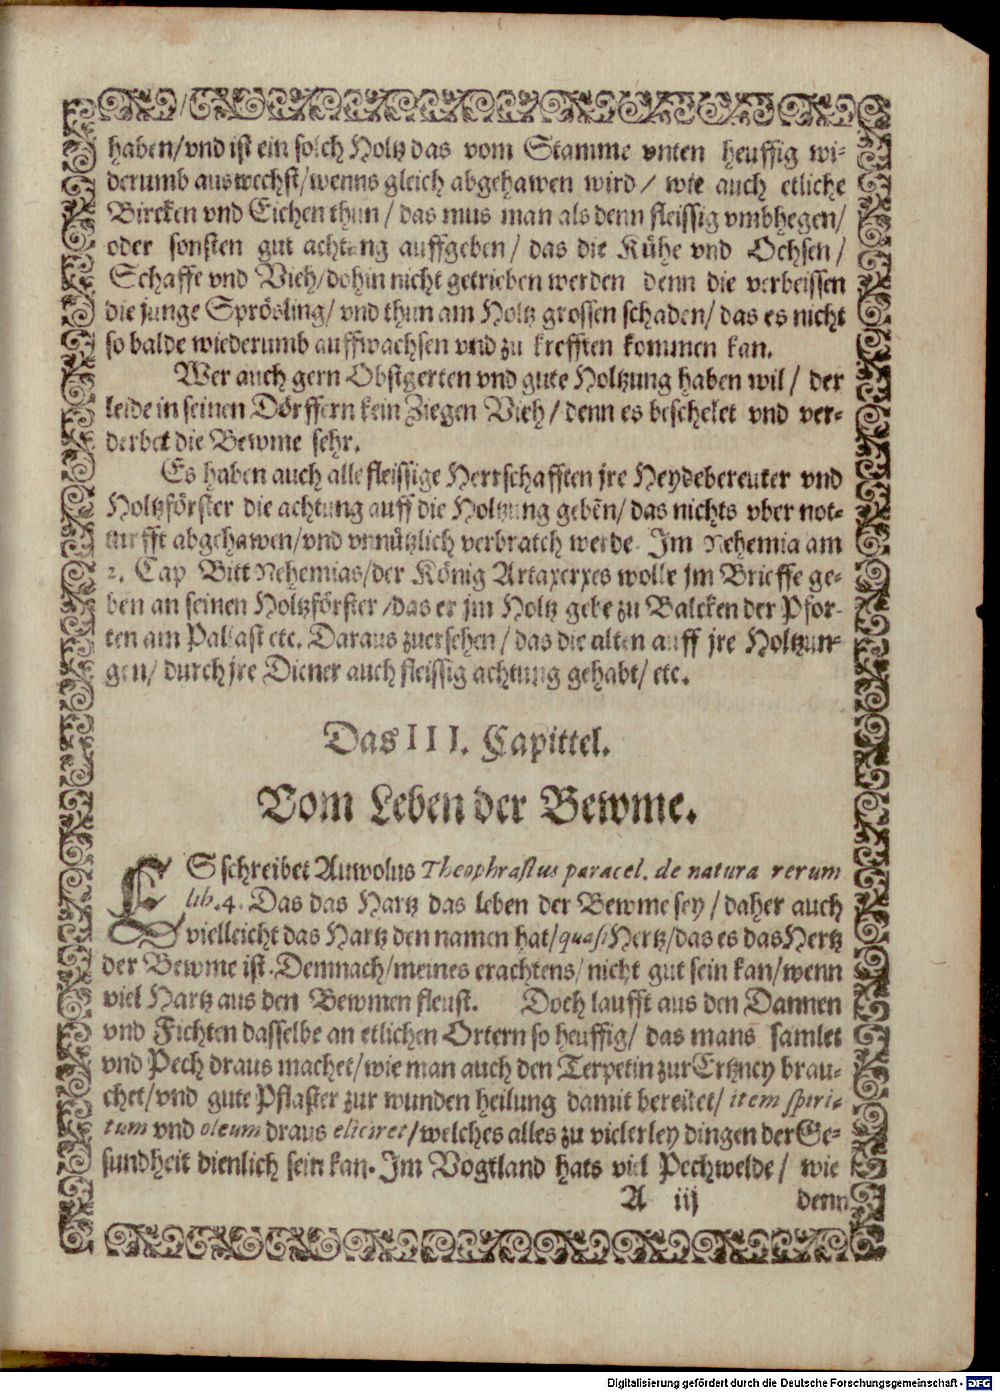 haben/vnd ist ein solch Holtz das vom Stamme vnten heuffig wi-
derumb auswechst/wenns gleich abgehawen wird/ wie auch etliche
Bircken vnd Eichen thun/ das mus man als denn fleissig vmbhegen/
oder sonsten gut achtung auffgeben/ das die Kühe vnd Ochsen/
Schaffe vnd Vieh/dohin nicht getrieben werden denn die verbeissen
die junge Sprösling/ vnd thun am Holtz grossen schaden/ das es nicht
so balde wiederumb auffwachsen vnd zu krefften kommen kan.
Wer auch gern Obstgerten vnd gute Holtzung haben wil/ der
leide in seinen Dörffern kein Ziegen Vieh/ denn es beschelet vnd ver-
derbet die Bewme sehr.
Es haben auch alle fleissige Herrschafften jre Heydebereuter vnd
Holtzförster die achtung auff die Holtzung gebẽn/ das nichts vber not-
turfft abgehawen/vnd vnnützlich verbratch werde. Im Nehemia am
2. Cap Bitt Nehemias/der König Artaxerxes wolle jm Brieffe ge-
ben an seinen Holtzförster/das er jm Holtz gebe zu Balcken der Pfor-
ten am Pallast etc. Daraus zuersehen/ das die alten auff jre Holtzun-
gen/ durch jre Diener auch fleissig achtung gehabt/ etc.
Das III. Capittel.
Vom Leben der Bewme.
ES schreibet Auwolus Theophrastus paracel. de natura rerum
lib.4. Das das Hartz das leben der Bewme sey/daher auch
vielleicht das Hartz den namen hat/quasi Hertz/das es das Hertz
der Bewme ist. Demnach/meines erachtens/nicht gut sein kan/wenn
viel Hartz aus den Bewmen fleust. Doch laufft aus den Dannen
vnd Fichten dasselbe an etlichen Ortern so heuffig/ das mans samlet
vnd Pech draus machet/wie man auch den Terpetin zur Ertzney brau-
chet/vnd gute Pflaster zur wunden heilung damit bereitet/ item spiri-
tum vnd oleum draus eliciret/welches alles zu vielerley dingen der Ge-
sundheit dienlich sein kan. Im Vogtland hats viel Pechwelde/ wie
A iij denn
Digitalisierung gefördert durch die Deutsche Forschungsgemeinschaft - DFG